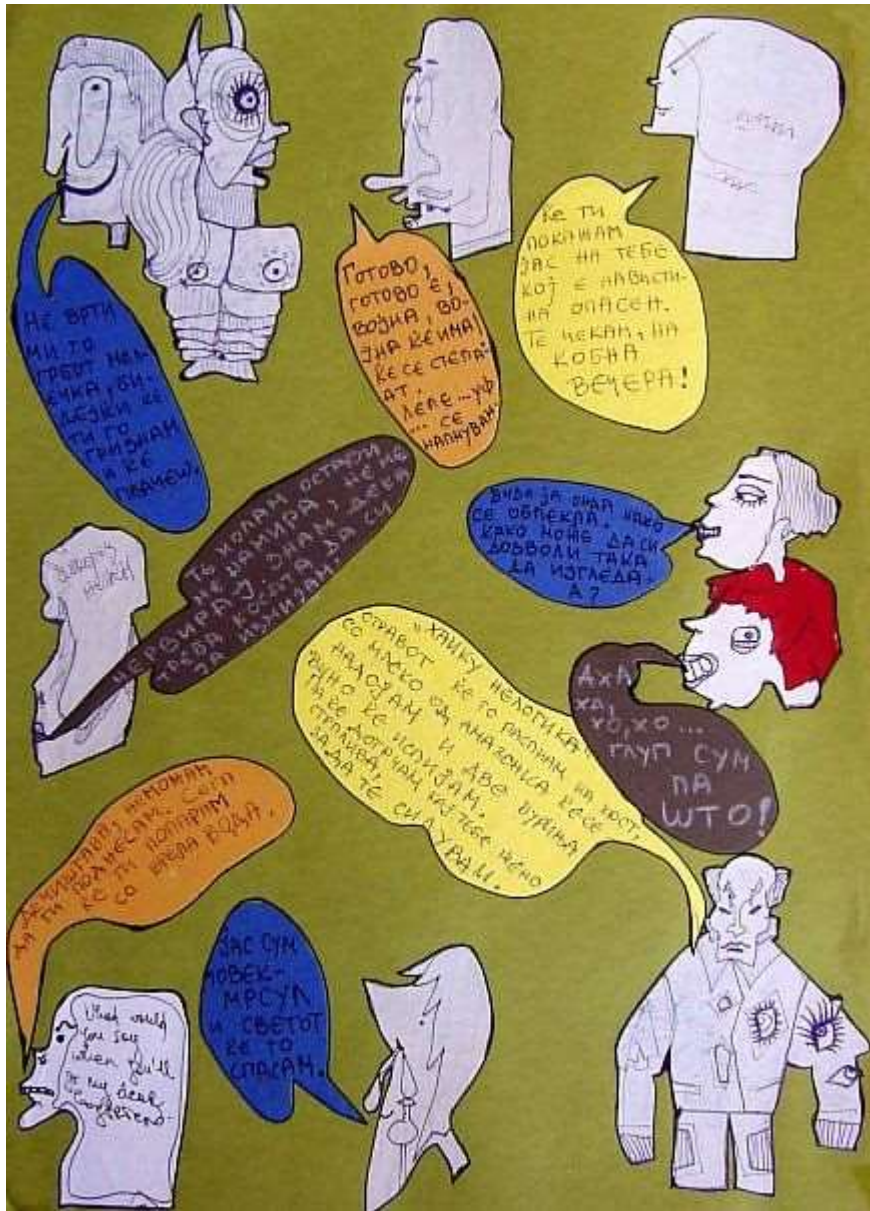 НЕ ВРТИ
МИ ГО
ГРБОТ
ЧКА, БИ-
ДЕЈКИ ЌЕ
ТИ ГО
ГРИЗНАМ
И ЌЕ
ПЛАЧЕШ.
ГОТОВО,
ГОТОВО Е,
ВОЈНА, ВО-
ЈНА ЌЕ ИМА!
ЌЕ СЕ СТЕПА-
АТ.
ЛЕЛЕ...УФ
... СЕ
НАПНУВАМ
ЌЕ ТИ
ПОКАЖАМ
ЈАС НА ТЕБЕ
КОЈ Е НАВИСТИ-
НА ОПАСЕН.
ТЕ ЧЕКАМ, НА
КОБНА
ВЕЧЕРА!
ГО КОЛАМ ОСТАТИ
НЕ НАМИРА, НЕ МЕ
НЕРВИРАЈ ЗНАМ ДЕКА
ТРЕБА КОСАТА ДА СИ
ЈА ИЗМИЈАМ.
ВИДИ ЈА ОНАА КАКО
СЕ ОБЛЕКЛА.
КАКО МОЖЕ ДА СИ
ДОЗВОЛИ ТАКА
ДА ИЗГЛЕДА-
А?
АХА
ХА,
ХО, ХО...
ГЛУП СУМ
ПА
ШТО!
"ХАИКУ НЕЛОГИКА"
СТРАВОТ ЌЕ ГО РАСПНАМ НА КРСТ,
СО МЛЕКО ОД АМАЗОНКА ЌЕ СЕ
НАДОЈАМ И ДВЕ БУРИЊА
ВИНО ЌЕ ИСПИЈАМ.
ПА ЌЕ ДОТРЧАМ КАЈ ТЕБЕ ЖЕНО
СТРАШЛИВА,
ЗА ДА ТЕ СИЛУВАМ.
НЕМОЖАМ
ДА ТИ ПОДНЕСАМ. СЕГА
ЌЕ ТИ ПОПАРАМ
СО ВРЕЛА ВОДА.
ЈАС СУМ
ЧОВЕК-
МРСУЛ
И СВЕТОТ
ЌЕ ГО
СПАСАМ.
What would
you say
when you'll
my dear